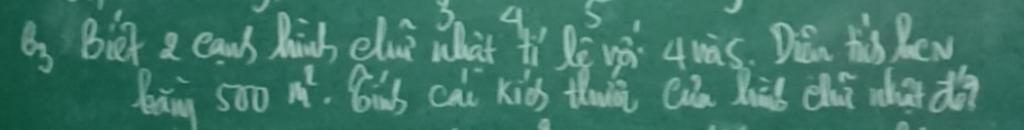 3 4 5
B3 Biết 2 cạnh hình chữ nhật tỉ lệ với 4 và 5. Diện tích hcn
bằng 500 m². Tính các kích thước của hình chữ nhật đó?